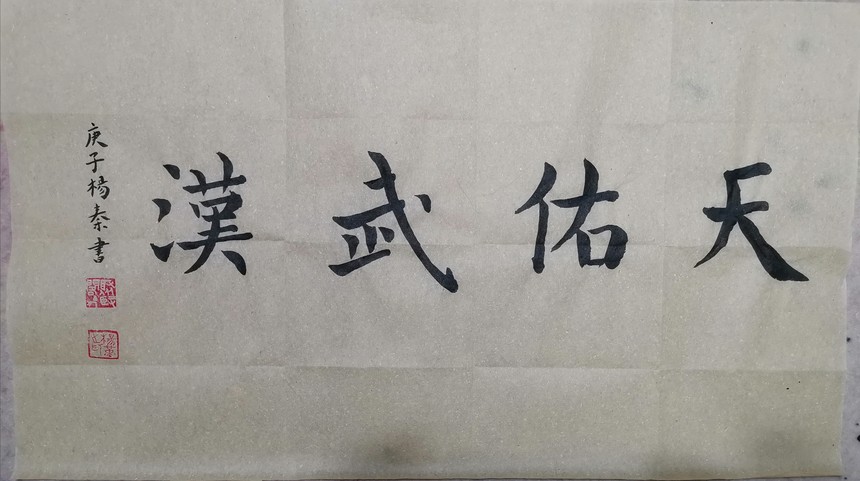 天佑武漢
庚子楊秦書